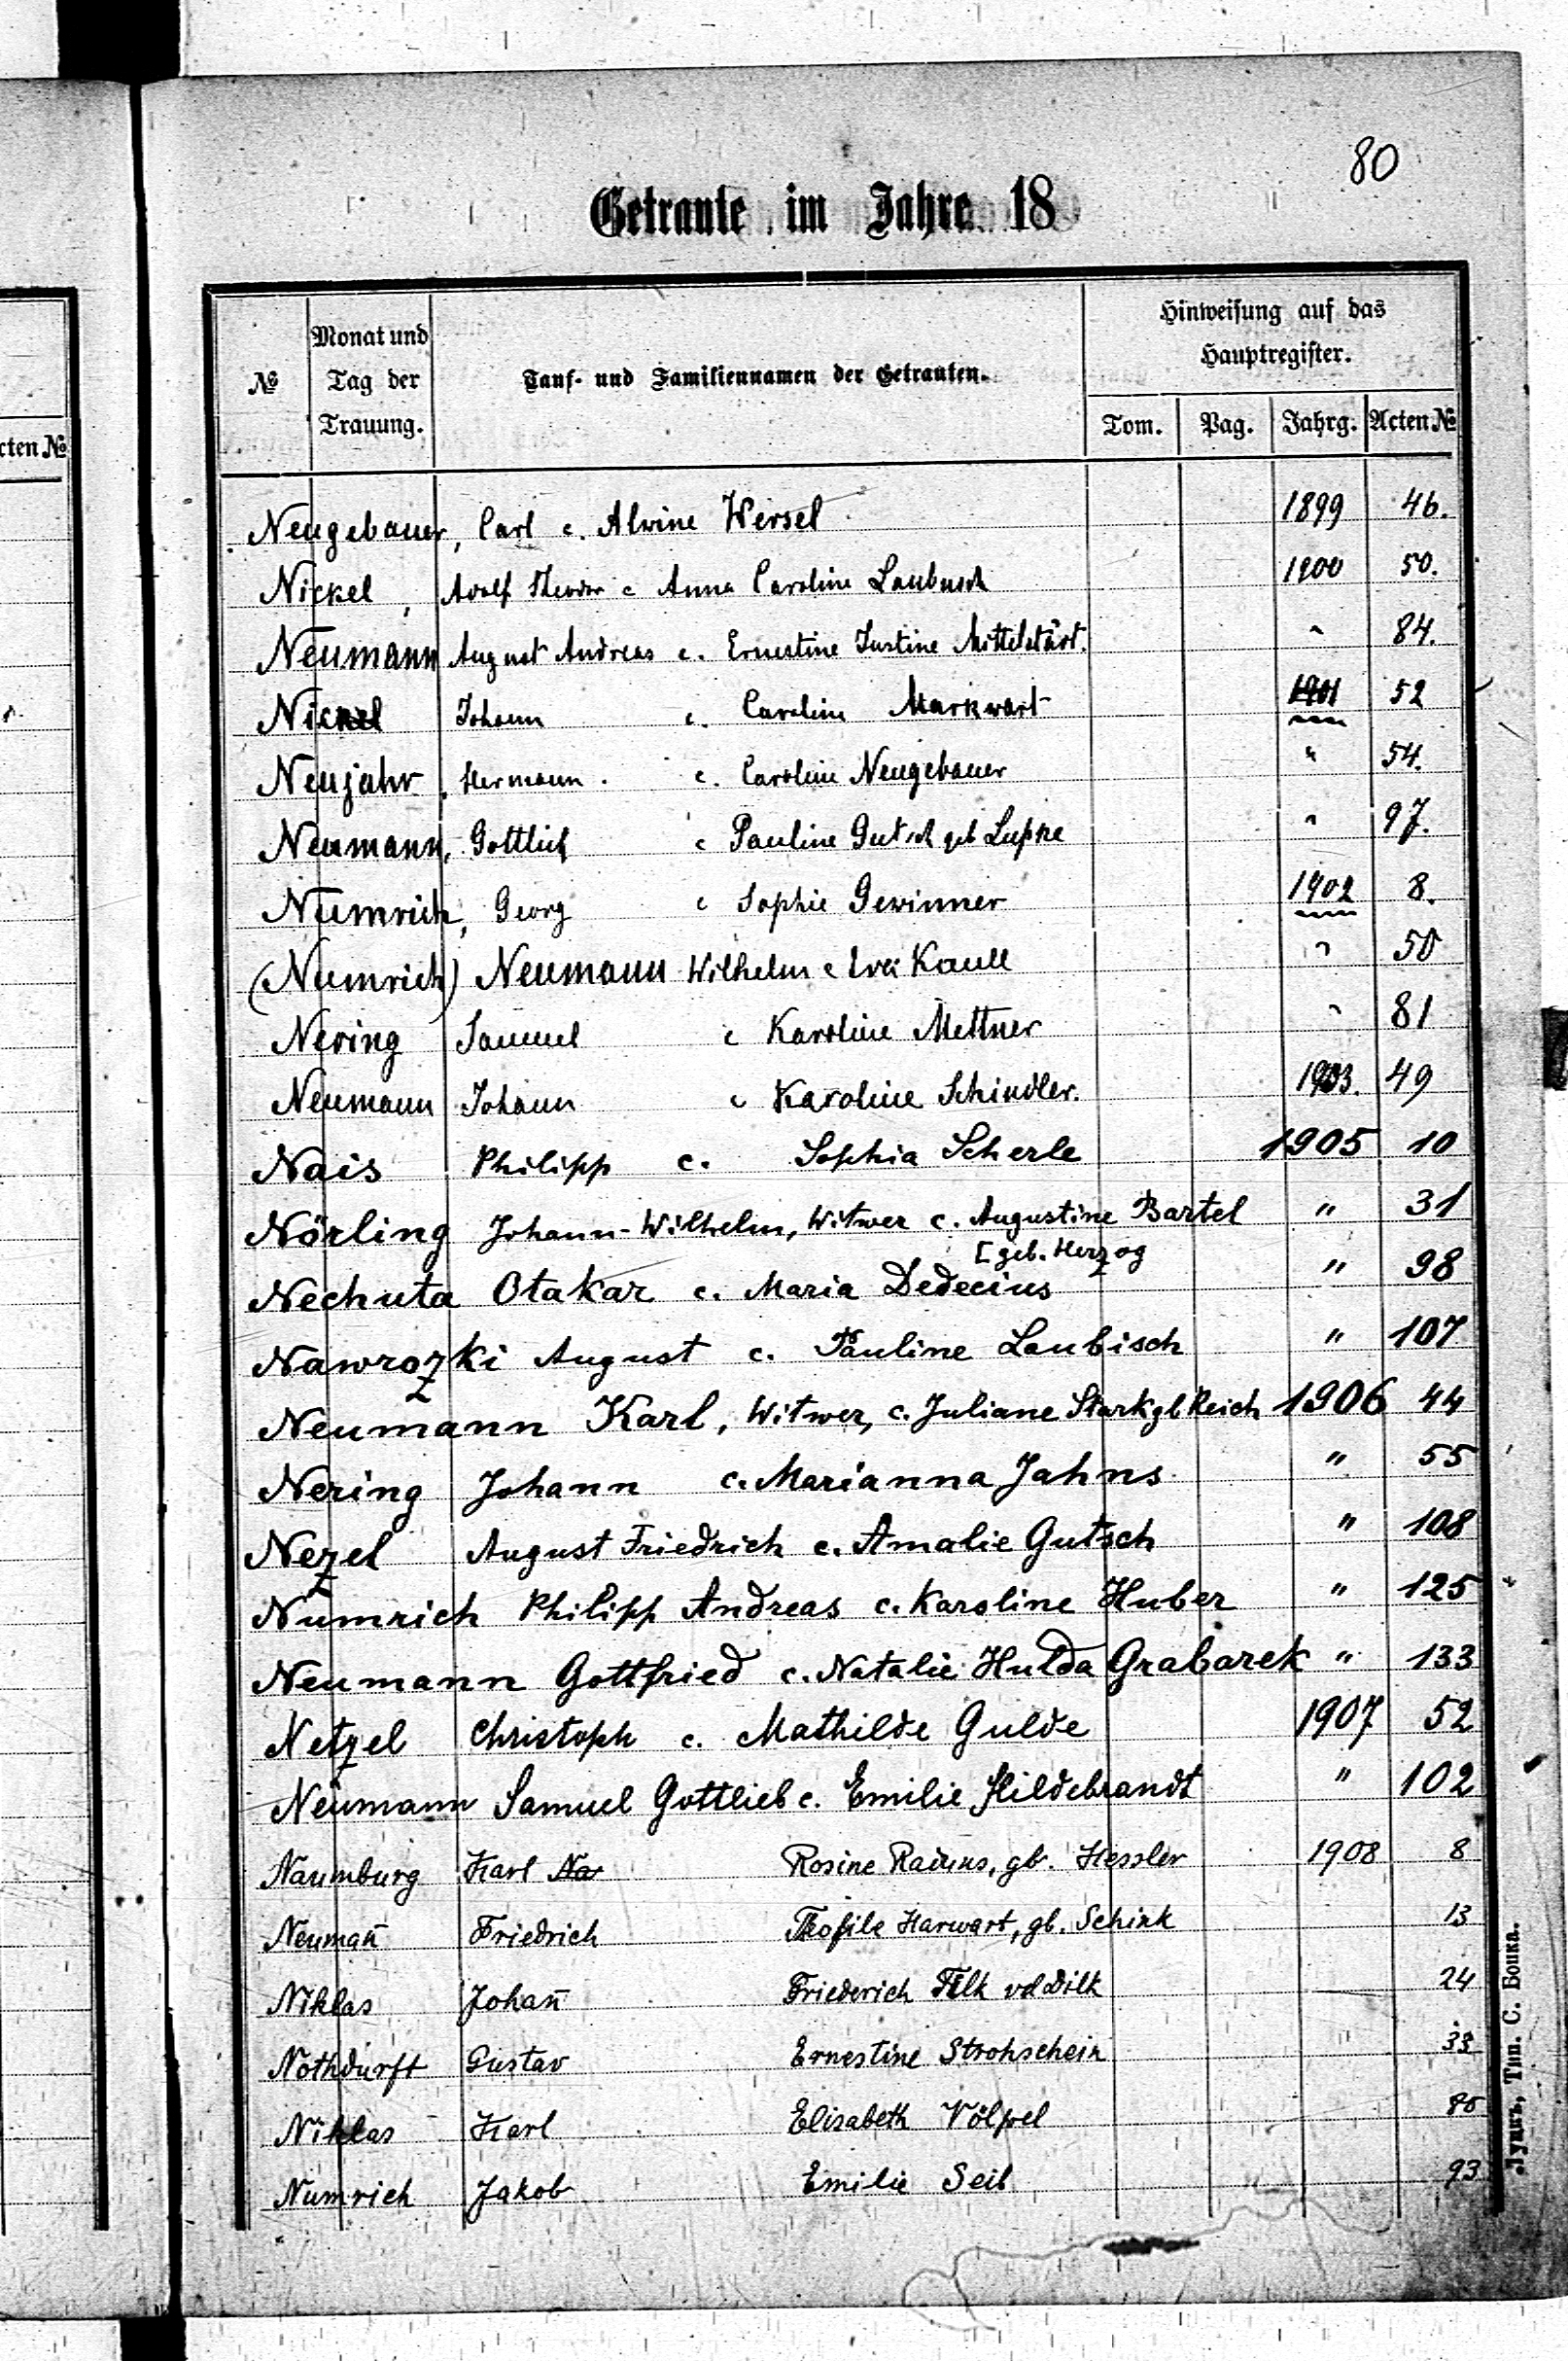 80
Getraute im Jahre 18
№
Monat und Tag der Trauung.
Tauf- und Familiennamen der Getrauten.
Hinweisung auf das Hauptregister.
Tom. Pag. Jahrg. Acten №
cten №
Neugebauer, Carl c. Alvine Wersel 1899 46.
Nickel, Adolf Theodor c Anna Caroline Laubusch 1900 50.
Neumann August Andreas c. Ernestine Justine Mittelstädt. " 84.
Nickel Johann c. Caroline Markwart 1901 52
Neujahr, Hermann. c. Caroline Neugebauer " 54.
Neumann, Gottlieb c Pauline Gutsch geb Lupke " 97.
Numrich, Georg c Sophie Gewinner 1902 8.
(Numrich) Neumann Wilhelm c Eva Kaull " 50
Nering Samuel c Karoline Mettner " 81
Neumann Johann c Karoline Schindler. 1903. 49
Nais Philipp c. Sophia Scherle 1905 10
Nörling Johann-Wilhelm, Witwer c. Augustine Bartel " 31
[geb. Herzog
Nechuta Otakar c. Maria Dedecius " 98
Nawrozki August c. Pauline Laubisch " 107
Neumann Karl, Witwer, c. Juliane Stark gb Reich 1906 44
Nering Johann c. Marianna Jahns " 55
Nezel August Friedrich c. Amalie Gutsch " 108
Numrich Philipp Andreas c. Karoline Huber " 125
Neumann Gottfried c. Natalie Hulda Grabarek " 133
Netzel Christoph c. Mathilde Gulde 1907 52
Neumann Samuel Gottlieb c. Emilie Hildebrandt " 102
Naumburg Karl Na Rosine , gb. Hessler 1908 8
Neumañ Friedrich Theofile Harwart, gb. Schink 13
Niklas Johañ Friederich 24
Nothdurft Gustav Ernestine Strohschein 33
Niklas Karl Elisabeth Völpel
Numrich Jakob Emilie Seib 93
Луцкъ, Тип. С. Бонка.